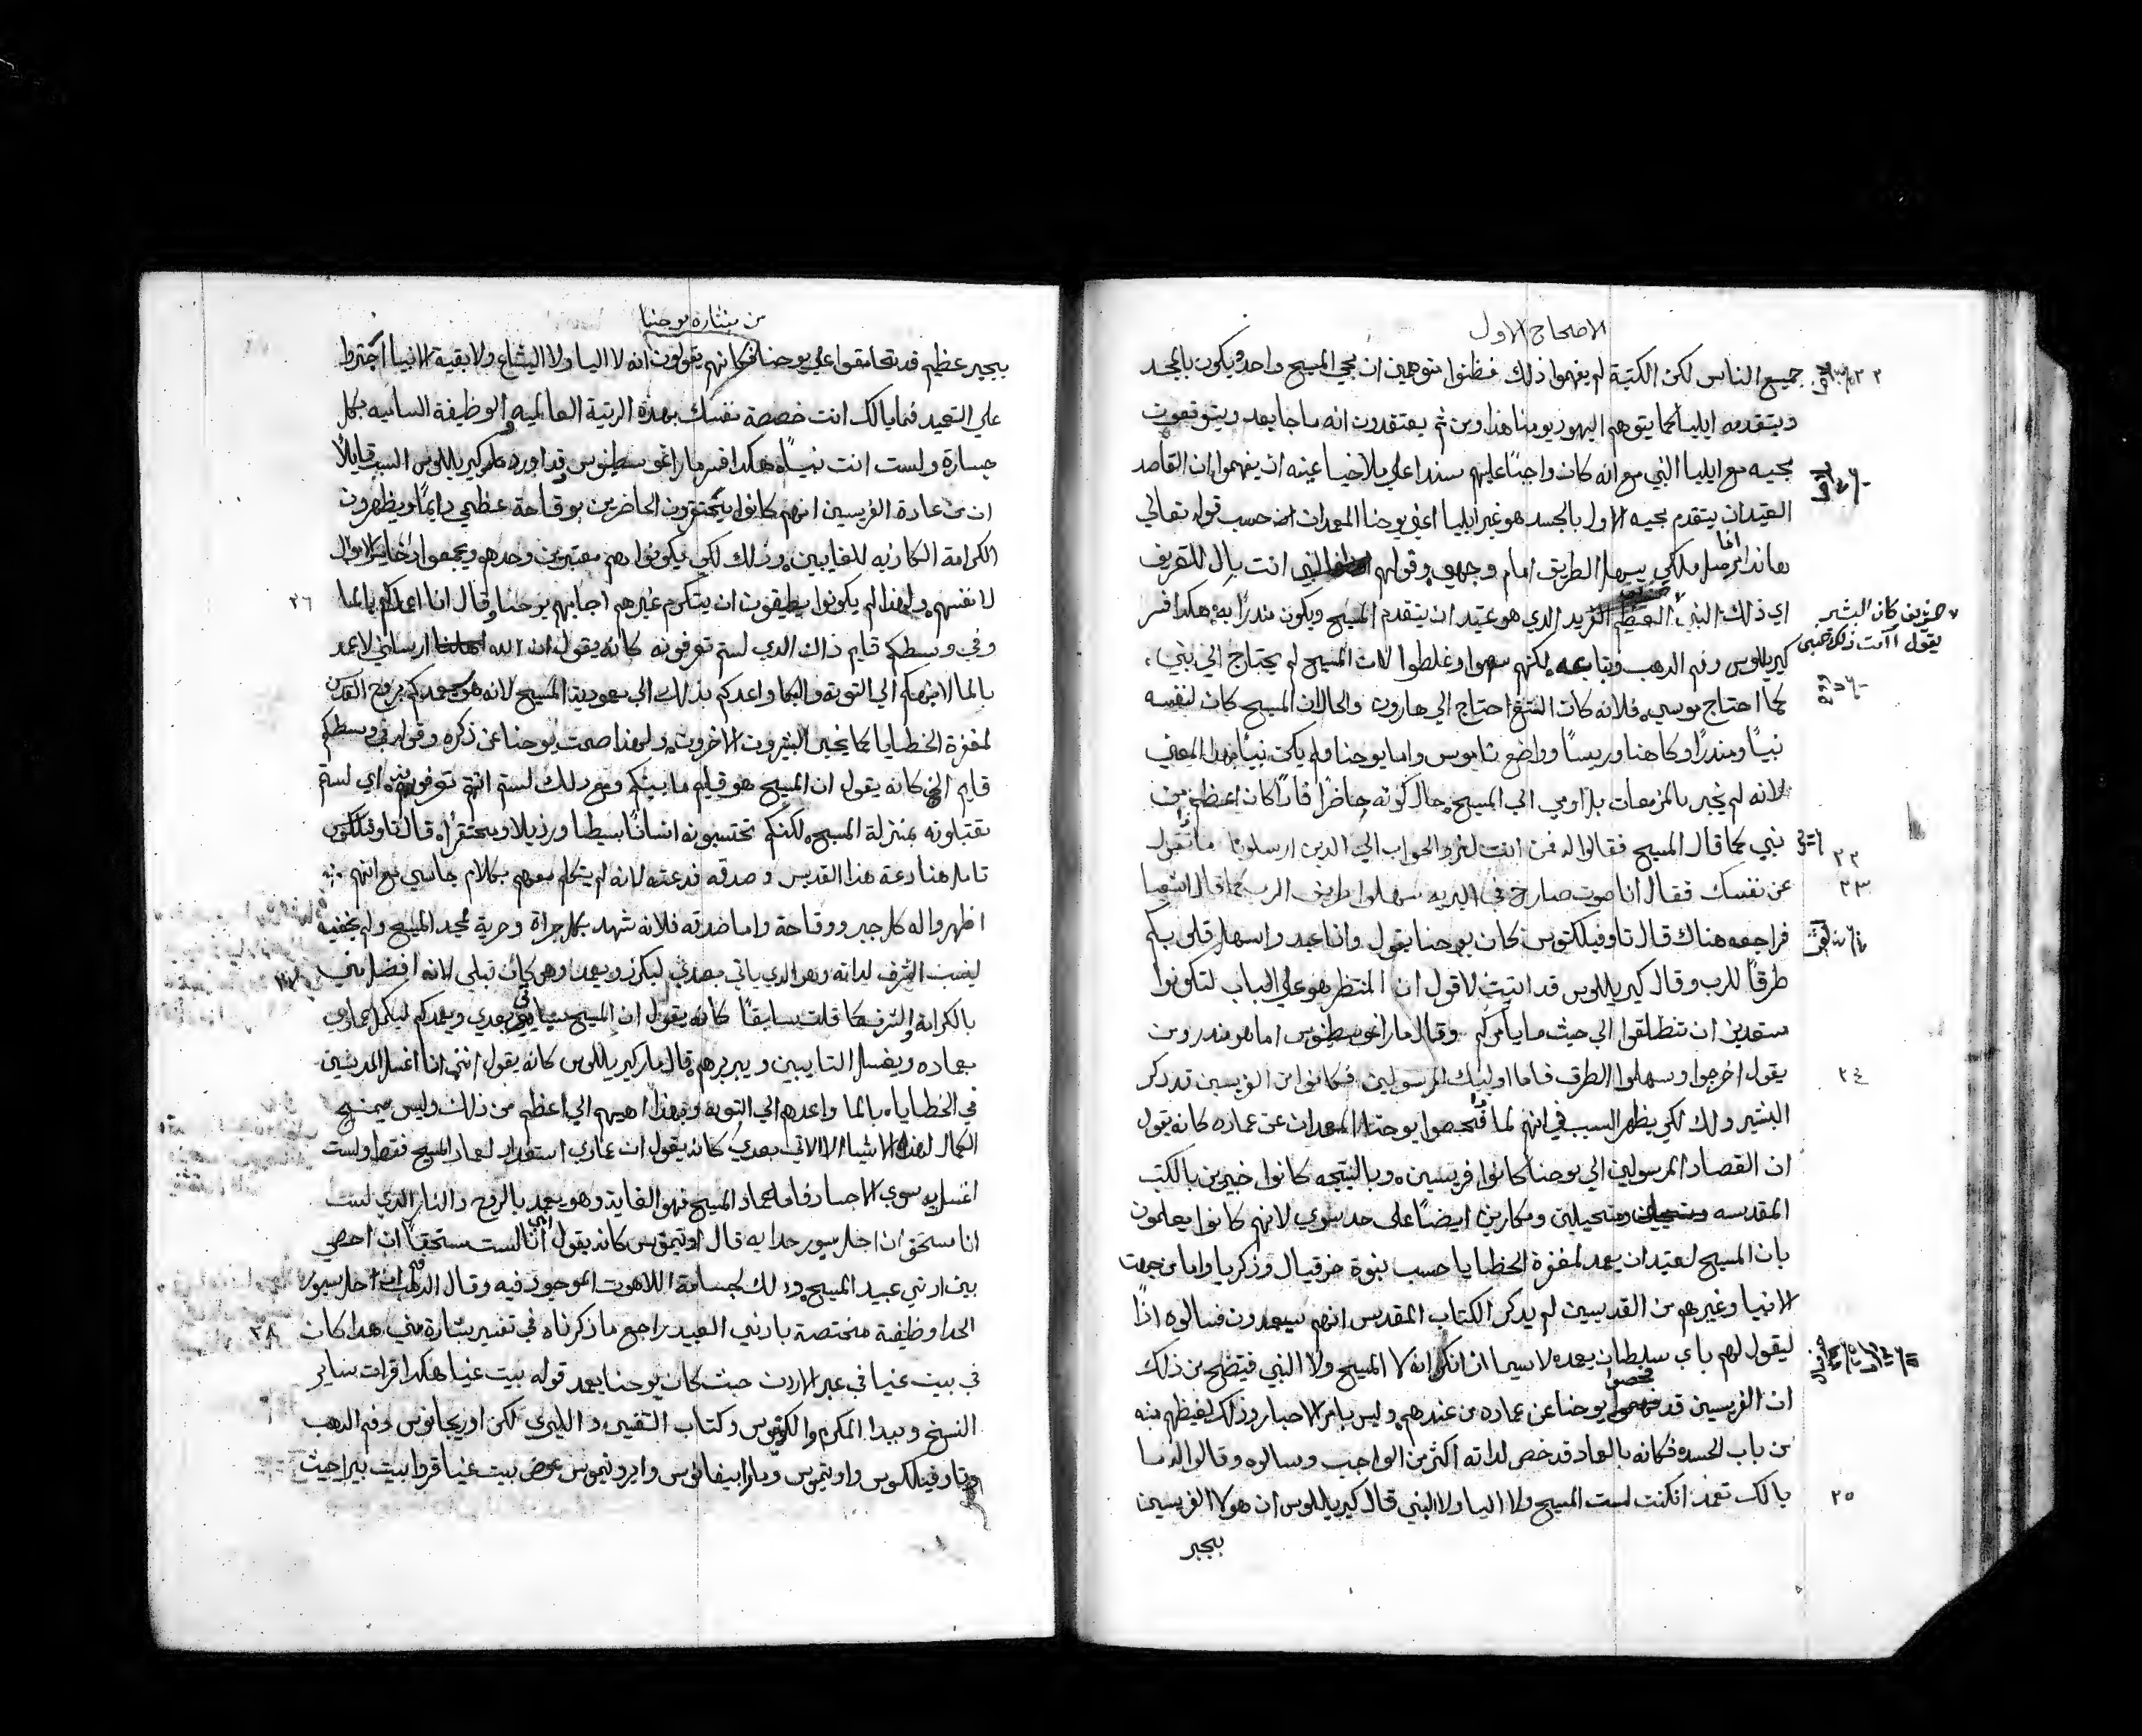 الاصحاح الاول
جميع الناس لكن الكتبة لم يفهموا ذلك فظنوا متوهمين ان مجي المسيح واحد ويكون بالمجد
ويتقدمه ايليا كما يتوهم اليهود يومنا هذا ومن ثم يعتقدون انه ما جا بعد ويتوقعون
مجيه مع ايليا النبي مع انه كان واجبًا عليهم سندا علي ملاخيا عينه ان يفهموا ان القاصد
العتيد ان يتقدم مجيه الاول بالجسد هو غير ايليا اعني يوحنا المعمدان حسب قوله تعالي
هانذا مرسل ملاكي يسهل الطريق امام وجهي وقولهم النبي انت بال للتعريف
اي ذلك النبي العظيم الفريد الذي هو عتيد ان يتقدم المسيح ويكون منذرًا به هكذا فسر
كيريللوس وفم الدهب وتباعه لكنهم سهوا وغلطوا لان المسيح لم يحتاج الي نبي
كما احتاج موسي فلانه كان التغ احتاج الي هارون والحال ان المسيح كان لنفسه
نبيًا ومنذرًا وكاهنا وريسًا وواضع ناموس واما يوحنا فلم يكن نبيًا بهذا المعني
لانه لم يخبر بالمزمعات بل اومي الي المسيح حال كونه حاضرًا كان اعظم من
نبي كما قال المسيح فقالوا له فمن انت لنرد الجواب الي الذين ارسلونا ما تقول
٢٢
عن نفسك فقال انا صوت صارخ في البريه سهلوا طريق الرب كما قال اشعيا
٢٣
فراجعه هناك قال تاوفيلكتوس كان يوحنا يقول وانا عبد واسهل قلوبكم
طرقًا للرب وقال كيريللوس قد اتيت لاقول ان المنتظر هو علي الباب لتكونوا
مستعدين ان تنطلقوا الي حيث ما يامركم وقال مار اغوسطينوس اما هو منذر ومن
يقول اخرجوا وسهلوا الطرق فاما اوليك المرسولين فكانوا من الفريسين قد ذكر
٢٤
البشير ذلك لكي يظهر السبب في انهم لما فحصوا يوحنا المعمدان عن عماده كانه يقول
ان القصاد المرسولين الي يوحنا كانوا فريسين وبالنتيجه كانوا خبيرين بالكتب
المقدسه ومتحيلين ومكارين ايضًا علي حد سوي لانهم كانوا يعلمون
بان المسيح لعتيد ان يعمد لمغفرة الخطايا حسب نبوة حزقيال وزكريا واما من جهت
الانبيا وغيرهم من القديسين لم يذكر الكتاب المقدس انهم سيعمدون فسالوه اذًا
ليقول لهم باي سلطان يعمد لاسيما اذ انكر انه لا المسيح ولا النبي فيتضح من ذلك
ان الفريسين قد فحصوا يوحنا عن عماده من عندهم وليس بامر الاحبار وذلك لغيظهم منه
من باب الحسد فكانه بالعماد قد خص لذاته اكثر من الواجب وسالوه وقالوا له ما
بالك تعمد انكنت لست المسيح ولا اليا ولا النبي قال كيريللوس ان هولا الفريسين
٢٥
بجبر
من بشارة يوحنا
بجبر عظيم قد تحامقوا علي يوحنا فكانهم يقولون انه لا اليا ولا اليشاع ولا بقية الانبيا اجترط
علي التعميد فما بالك انت خصصة نفسك بهذه الرتبة العاليه والوظيفة الساميه بكل
جسارة ولست انت نبيًا هكذا فسر مار اغوسطينوس وقد اورد مار كيريللوس السبب قايلًا
ان من عادة الفريسين انهم كانوا يحتقرون الحاضرين بوقاحة عظمي دايمًا ويظهرون
الكرامة الكاذبه للغايبين وذلك لكي يكونوا هم معتبرين وحدهم ويجمعوا ذخاير الاموال
لانفسهم ولهذا لم يكونوا يطيقون ان يتكرم غيرهم اجابهم يوحنا وقال انا اعمدكم بالما
٢٦
وفي وسطكم قايم ذاك الذي لستم تعرفونه كانه يقول ان الله ارسلني لاعمد
بالما لانبهكم الي التوبة والبكا واعدكم بذلك الي معمودية المسيح لانه هو يعمدكم بروح القدس
لمغفرة الخطايا كما يخبر البشيرون الاخرون ولهذا صمت يوحنا عن ذكره وقوله في وسطكم
قايم الخ كانه يقول ان المسيح هو قايم ما بينكم ومع ذلك لستم انتم تعرفونه اي لستم
تقبلونه بمنزلة المسيح لكنكم تحتسبونه انسانًا بسيطا ورذيلا ومحتقرًا قال تاوفيلكتوس
تامل هنا دعة هذا القديس وصدقه فدعته لانه لم يتكلم معهم بكلام جاسي مع انهم
اظهروا له كل جبر ووقاحة واما صدقه فلانه شهد بكل جراة وحرية لمجد المسيح ولم يخفيه
ليغصب الشرف لذاته وهو الذي ياتي بعدي ليكرز ويعمد وهو كان قبلي لانه افضل مني
بالكرامة والشرف كما قلت سابقًا كانه يقول ان المسيح سياتي بعدي ويعمدكم ليكمل عمادي
بعماده ويغسل التايبين ويبررهم قال مار كيريللوس كانه يقول انني انا اغسل المدنسين
في الخطايا بالما واعدهم الي التوبه وبهذا اهيهم الي اعظم من ذلك وليس يمنح
الكمال لهذه الاشيا الا الاتي بعدي كانه يقول ان عمادي استعداد لعماد المسيح فقط ولست
اغسل به سوي الاجساد فاما عماد المسيح فهو الغاية وهو يعمد بالروح والنار الذي لست
انا مستحق ان احل سيور حذايه قال اوتيموس كانه يقول انني انا لست مستحقًا ان احصي
بين ادني عبيد المسيح وذلك لجسامة اللاهوت الموجود فيه وقال فم الدهب ان احل سيور
الحذا وظيفة مختصة بادني العبيد راجع ما ذكرناه في تفسير بشارة متي هذا كان
٢٨
في بيت عنيا في عبر الاردن حيث كان يوحنا يعمد قوله بيت عنيا هكذا قرات ساير
النسخ وبيدا المكرم والكوينوس وكتاب التفسير والليري لكن اوريجانوس وفم الدهب
وتاوفيلكتوس واوتيموس ومار ابيفانوس وايرونيموس عوض بيت عنيا قروا بيت بيرا حيث